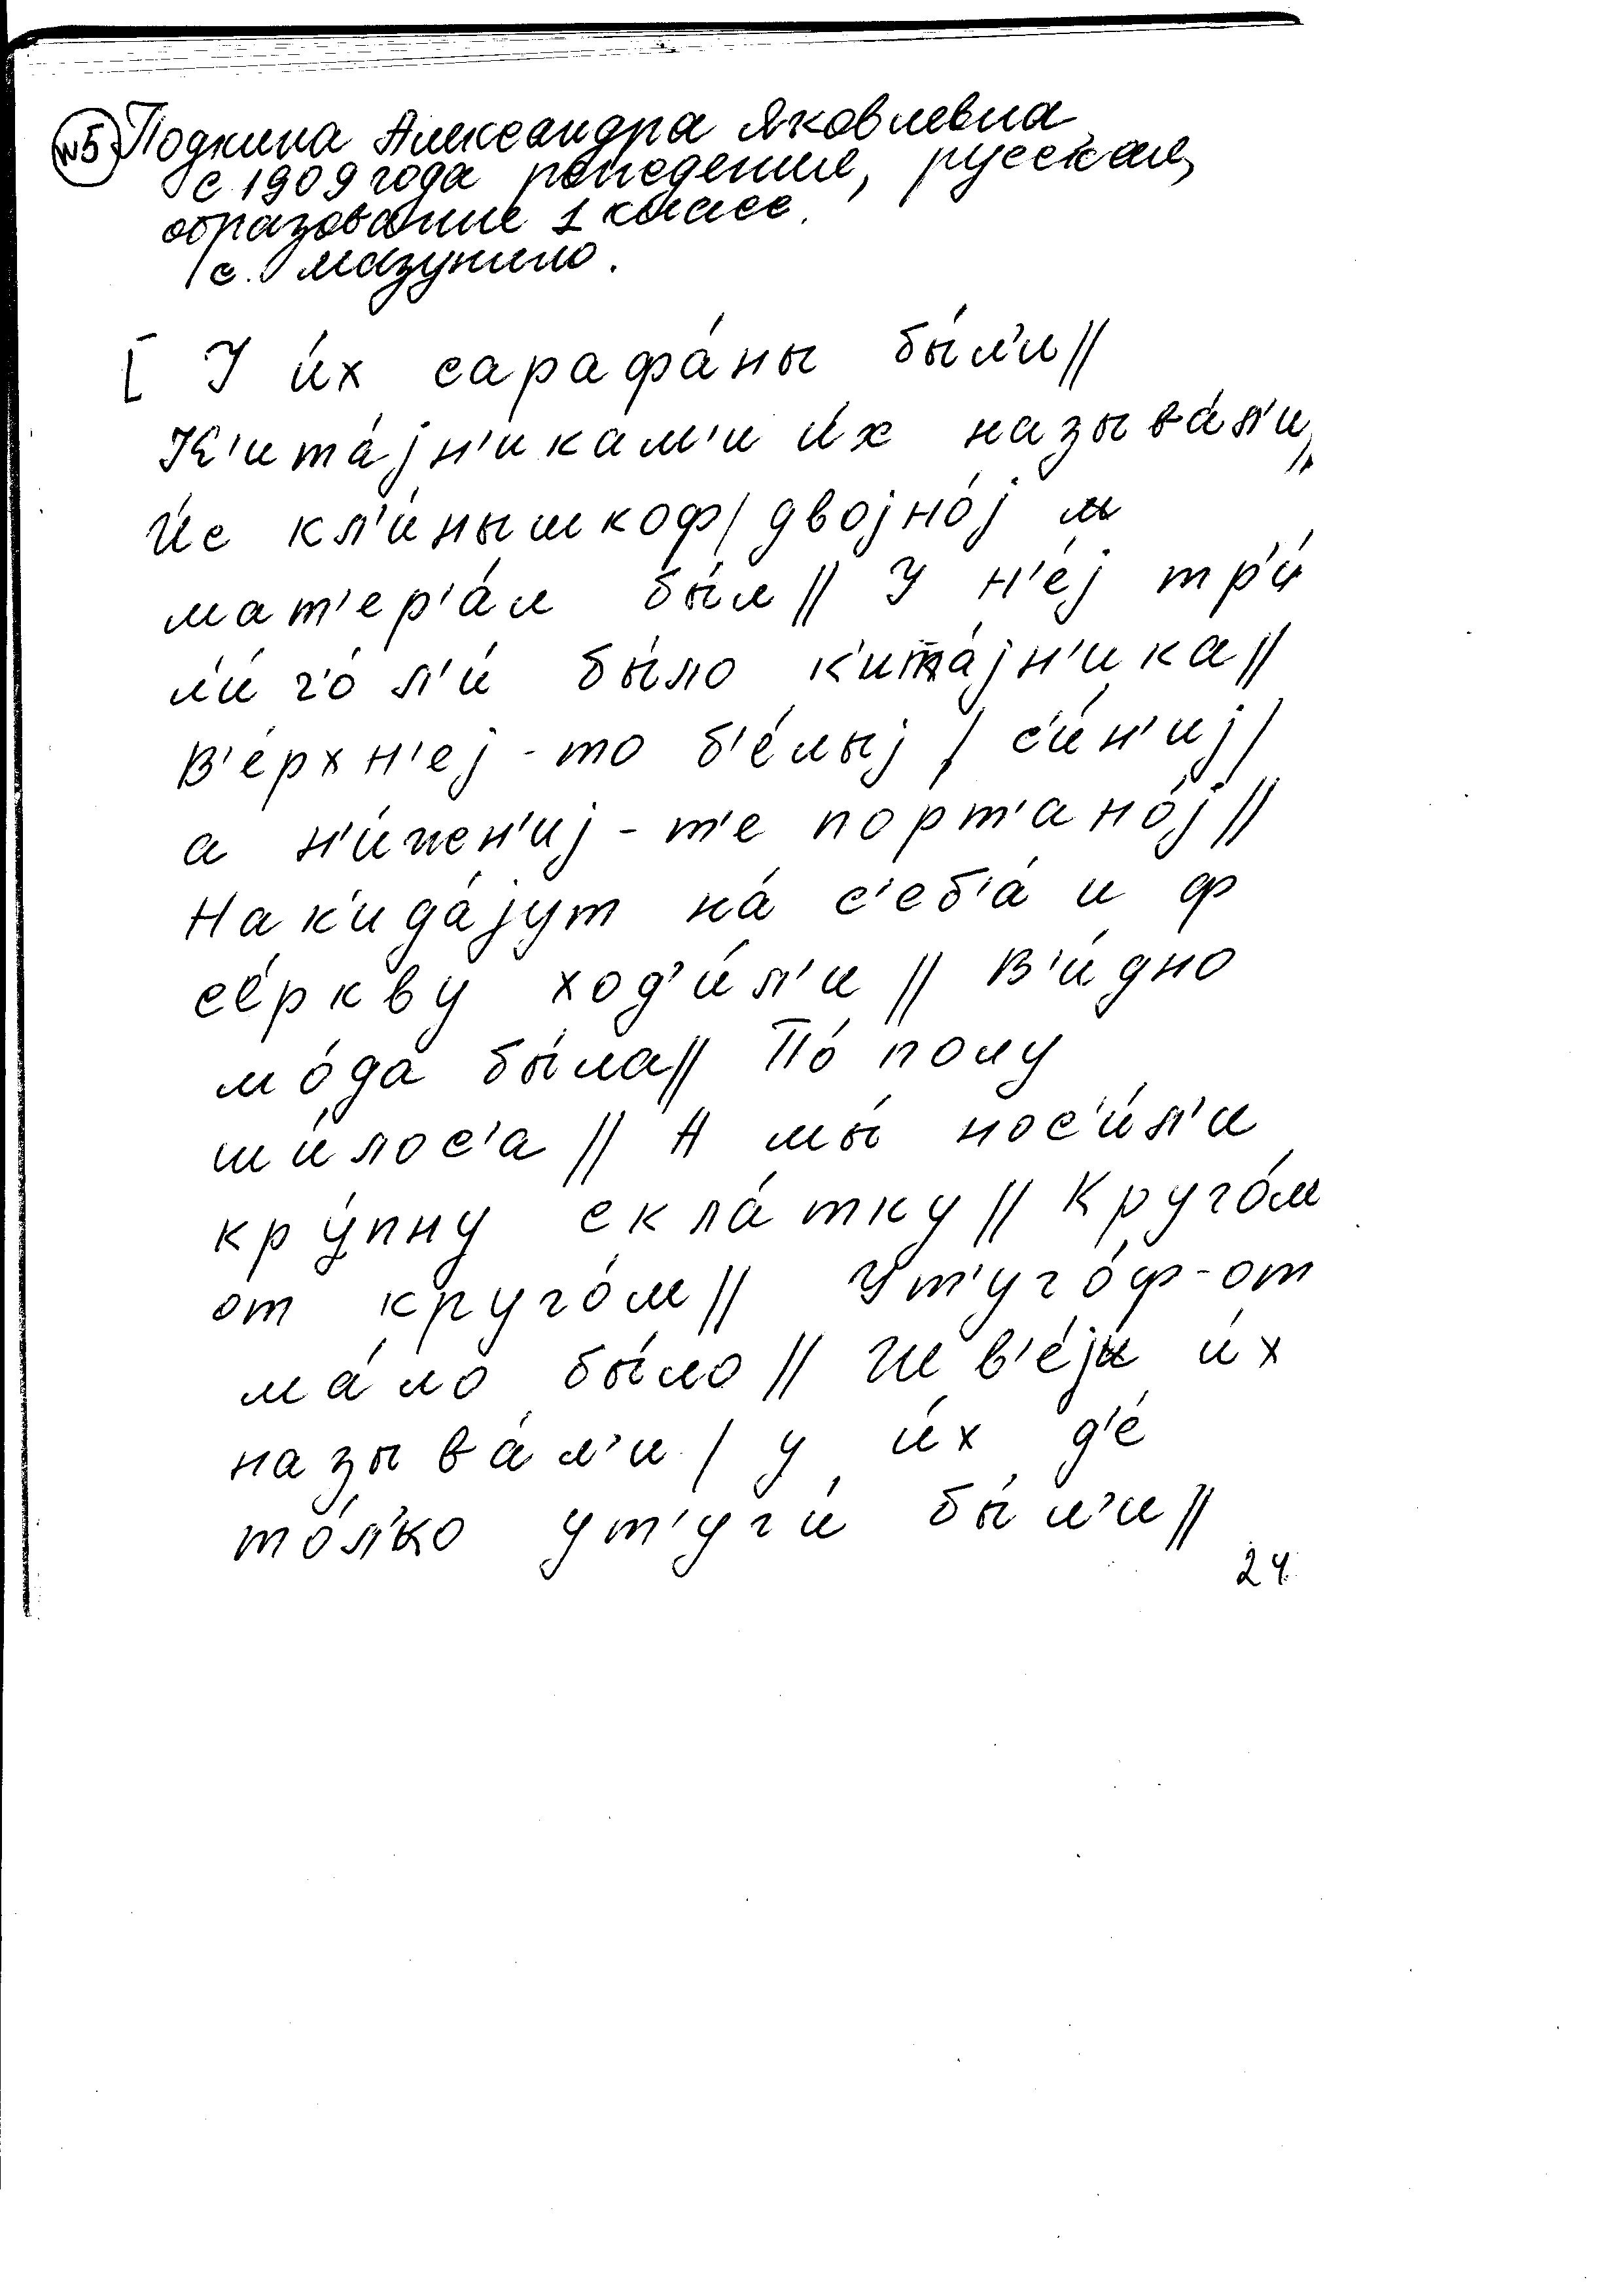 №5 Подкина Александра Яковлевна
с 1909 года рождения, русская,
образование 1 класс.
с. Мазунино.
[ У и́х сарафа́ны бы́л'и//
К'ита́jн'икам'и и́х называ́л'и//
И́с кл'и́нышкоф/ двоjно́j
мат'ер'а́л бы́л// У н'е́j тр'и́
л'и́ г'о л'и́ бы́ло к'ита́jн'ика//
В'е́рхн'еj-то б'е́лыj / с'и́н'иj/
а н'и́жн'иj-т'е порт'ано́j//
Нак'ида́jут на́ с'еб'а́ и ф
се́ркву ход'и́л'и // В'и́дно
мо́да бы́ла// По́ полу
ши́лос'а // А мы́ нос'и́л'и
кру́пну скла́тку// Круго́м
от круго́м// Ут'уго́ф-от
ма́ло бы́ло// Шв'е́jи и́х
называ́л'и / у и́х д'е́
то́л'ко ут'уги́ бы́л'и//
24